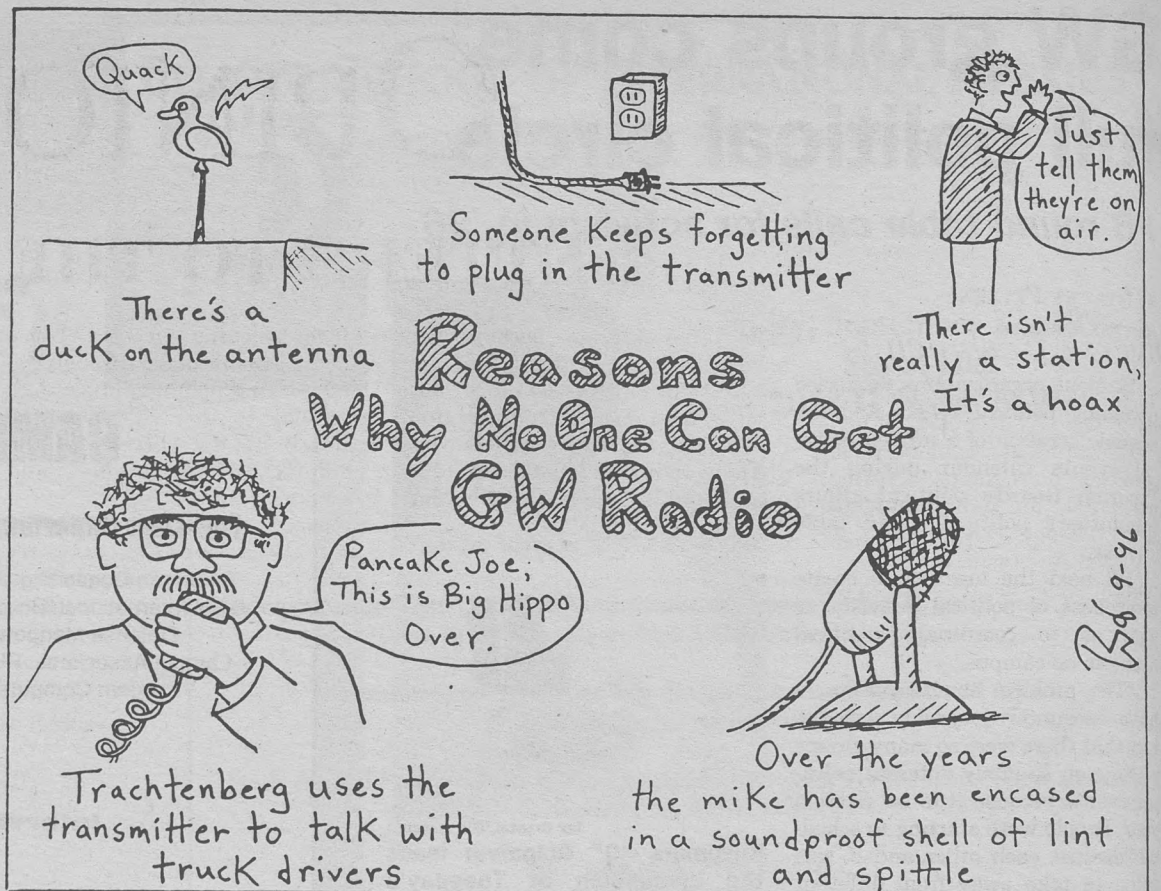 Quack
There's a
duck on the antenna
Someone Keeps forgetting
to plug in the transmitter
Just
tell them
they're on
air.
There isn't
really a station,
It's a hoax
Reasons
Why No One Can Get
GW Radio
Pancake Joe,
This is Big Hippo
Over.
Trachtenberg uses the
transmitter to talk with
truck drivers
Over the years
the mike has been encased
in a soundproof shell of lint
and spittle
9-9-96